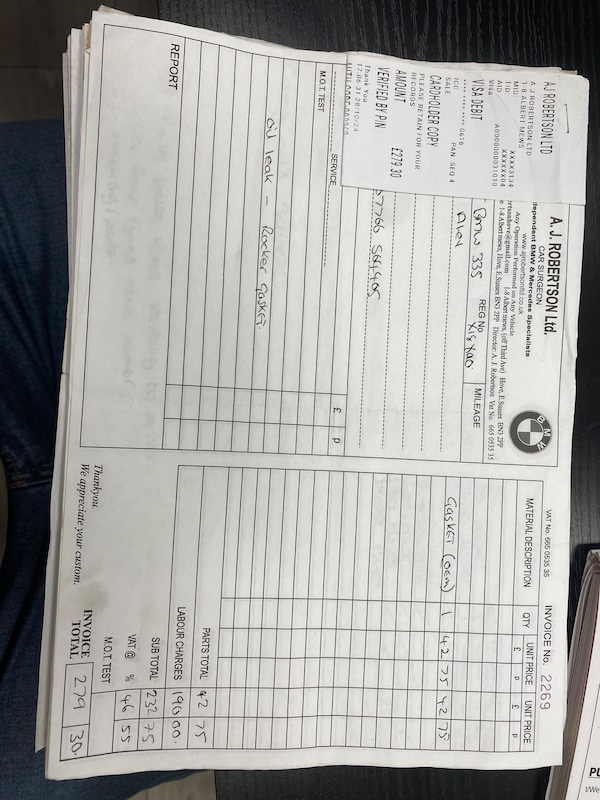 AJ ROBERTSON LTD
A J ROBERTSON LTD
1-8 ALBERT MEWS
MID XXXXX3134
TID XXXXXX04
AID A0000000031010
Visa
VISA DEBIT
**** **** **** 0616
ICC PAN SEQ 4
SALE
CARDHOLDER COPY
PLEASE RETAIN FOR YOUR
RECORDS
AMOUNT £279.30
VERIFIED BY PIN
Thank You
17:06 31/28/10/24
A. J. ROBERTSON Ltd.
CAR SURGEON
www.ajrobertsonltd.co.uk
dependent BMW & Mercedes Specialists
Any Operation Performed on Any Vehicle
rtsonhove@gmail.com 1-8 Albert mews, (off Third Ave) Hove, E.Sussex BN3 2PP
e 1-8 Albert mews, Hove, E.Sussex BN3 2PP Director: A. J. Robertson Vat No. 665 0535 35
BMW
BMW 335 REG No MILEAGE
Alex
07766 564405
SERVICE
M.O.T. TEST £ p
oil leak - Rocker gasket.
REPORT
VAT No. 665 0535 35 INVOICE No. 2269
MATERIAL DESCRIPTION QTY UNIT PRICE UNIT PRICE
£ p £ p
Gasket (oem) 1 42 75 42 75
PARTS TOTAL 42 75
LABOUR CHARGES 190 00.
SUB TOTAL 232 75
VAT @ % 46 55
M.O.T. TEST
INVOICE TOTAL 279 30
Thankyou.
We appreciate your custom.